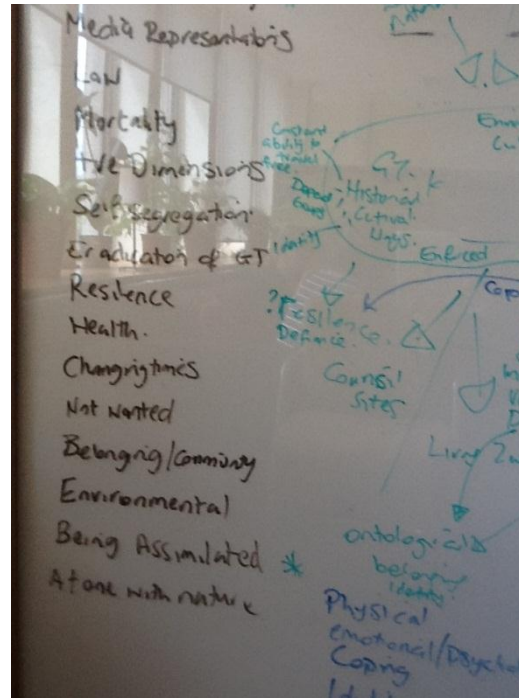 Media Representations
Law
Mortality
+ve Dimensions
Self segregation
Eradication of GT
Resilence
Health.
Changing times
Not wanted
Belonging/Community
Environmental
Being Assimilated *
At one with nature
ability to
travel
Historical
Cultural
Ways.
Identity
Enforced
? Resilence.
Defince.
Counsil
Sites
Living
ontological
belonging
Identity
Physical
emotional/Psycho
Coping